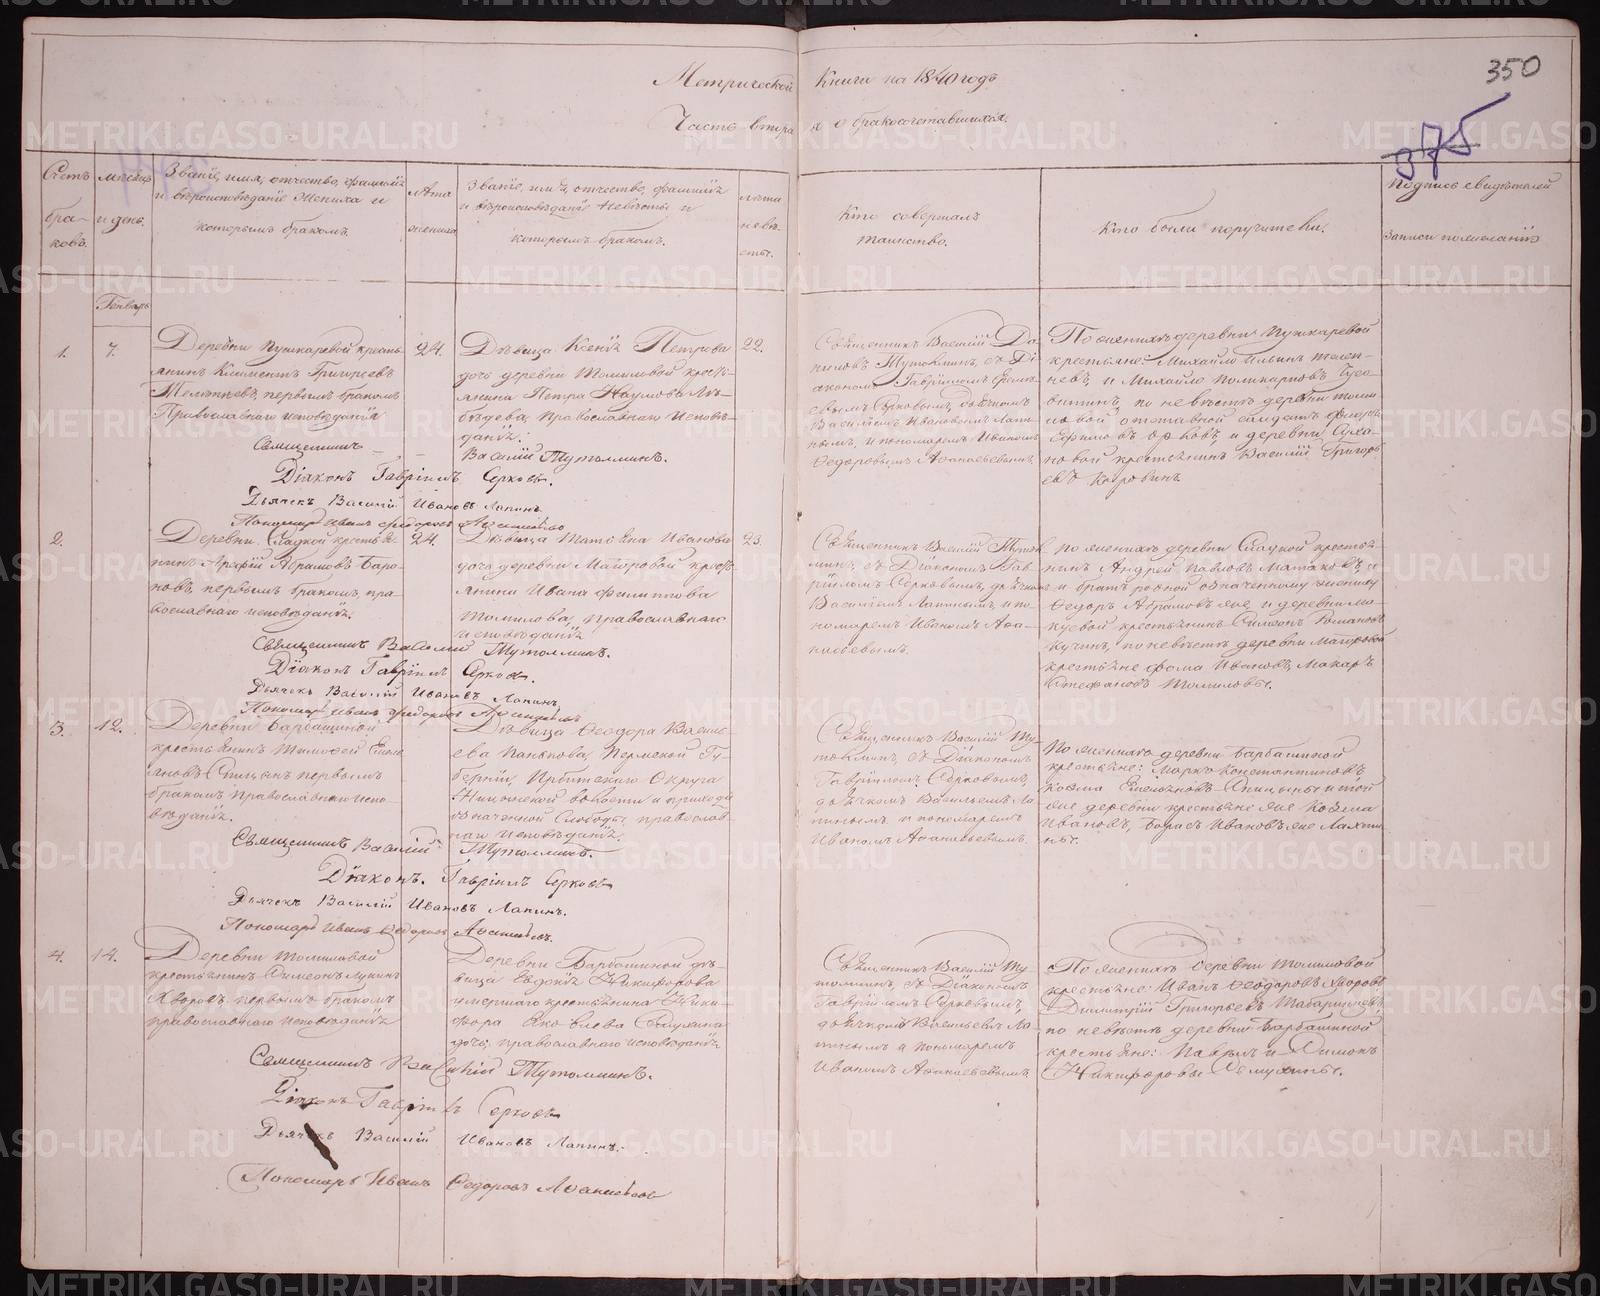 Метрической Книги на 1840 годъ
350
Часть вторая о бракосочетавшихся.
375
Счетъ браковъ.
Мѣсяцъ и день.
Званіе, имя, отчество, фамилія
и вѣроисповѣданіе жениха и
которымъ бракомъ.
Лѣта жениха
Званіе, имя, отчество, фамилія
и вѣроисповѣданіе невѣсты и
которымъ бракомъ.
лѣта невѣсты.
Кто совершалъ
таинство.
Кто были поручители.
Подпись свидѣтелей
записи по желанію
Генварь
1.
7.
Деревни Пушкаревой кресть-
янинъ Климентъ Григорьевъ
первымъ бракомъ
Православнаго исповѣданія
24.
Дѣвица Ксенія Петрова
дочь деревни Томиловой кресть-
янина Петра Наумова
Православнаго Исповѣ-
данія.
22.
Священникъ Василій Да-
ниловъ Тутолминъ, съ Ді-
акономъ Гавріиломъ
Серковымъ, дьячкомъ
Василіемъ Ивановымъ Лапи-
нымъ, и пономаремъ Иваномъ
Ѳедоровымъ Аѳанасьевымъ
По женихѣ деревни Пушкаревой
крестьяне: Михайло Ильинъ
и Михайло Поликарповъ
по невѣстѣ деревни Томи-
ловой отставной солдатъ
и деревни
крестьянинъ Василій Григорь-
евъ
Священникъ
Василій Тутолминъ.
Діаконъ Гавріилъ Серковъ.
Дьячекъ Василій Ивановъ Лапинъ
Пономарь Иванъ Ѳедоровъ Аѳанасьевъ
2.
Деревни Сладкой крестья-
нинъ Абрамовъ
первымъ бракомъ, пра-
вославнаго исповѣданія.
24.
Дѣвица Татьяна Иванова
дочь деревни Маіоровой кресть-
янина Ивана Филиппова
Томилова, православнаго
исповѣданія
23.
Священникъ Василій Тутол-
минъ, съ Діакономъ Гав-
ріиломъ Серковымъ, дьячкомъ
Василіемъ Лапинымъ, и по-
номаремъ Иваномъ Аѳа-
насьевымъ.
По женихѣ деревни Сладкой крестья-
нинъ Андрей Павловъ
и братъ родной означенному жениху
Ѳедоръ Абрамовъ же и деревни
крестьянинъ Симеонъ Романовъ
по невѣстѣ деревни Маіоровой
крестьяне Ѳома Ивановъ, Макаръ
Стефановъ Томиловы.
Священникъ Василій Тутолминъ.
Діаконъ Гавріилъ Серковъ.
Дьячекъ Василій Ивановъ Лапинъ
Пономарь Иванъ Ѳедоровъ Аѳанасьевъ
3.
12.
Деревни Барбашиной
крестьянинъ Тимофей Емель-
яновъ Спицынъ первымъ
бракомъ Православнаго испо-
вѣданія.
Дѣвица Ѳеодора Василь-
ева Панькова, Пермской Гу-
берніи, Ирбитскаго Округа
волости и прихода
означенной Слободы, православ-
наго исповѣданія.
Священникъ Василій Ту-
толминъ, съ Діакономъ
Гавріиломъ Серковымъ,
дьячкомъ Васильемъ Ла-
пинымъ и пономаремъ
Иваномъ Аѳанасьевымъ.
По женихѣ деревни Барбашиной
крестьяне: Марко Константиновъ,
Козма Емельяновъ Спицыны и той
же деревни крестьяне же Козма
Ивановъ, Борисъ Ивановъ же
Священникъ Василій Тутолминъ.
Діаконъ. Гавріилъ Серковъ
Дьячекъ Василій Ивановъ Лапинъ.
Пономарь Иванъ Ѳедоровъ Аѳанасьевъ.
4.
14.
Деревни Томиловой
крестьянинъ Симеонъ Лукинъ
Хворовъ, первымъ бракомъ
православнаго исповѣданія
Деревни Барбашиной дѣ-
вица Евдокія Никифорова
умершаго крестьянина Ники-
фора Яковлева
дочь, православнаго исповѣданія
Священникъ Василій Ту-
толминъ, съ Діакономъ
Гавріиломъ Серковымъ,
дьячкомъ Васильемъ Ла-
пинымъ и пономаремъ
Иваномъ Аѳанасьевымъ
По женихѣ деревни Томиловой
крестьяне: Иванъ Ѳеодоровъ Хворовъ
Димитрій Григорьевъ
по невѣстѣ деревни Барбашиной
крестьяне: Павелъ и Симонъ
Никифоровы
Священникъ Василій Тутолминъ.
Діаконъ Гавріилъ Серковъ
Дьячекъ Василій Ивановъ Лапинъ.
Пономарь Иванъ Ѳедоровъ Аѳанасьевъ
METRIKI.GASO-URAL.RU